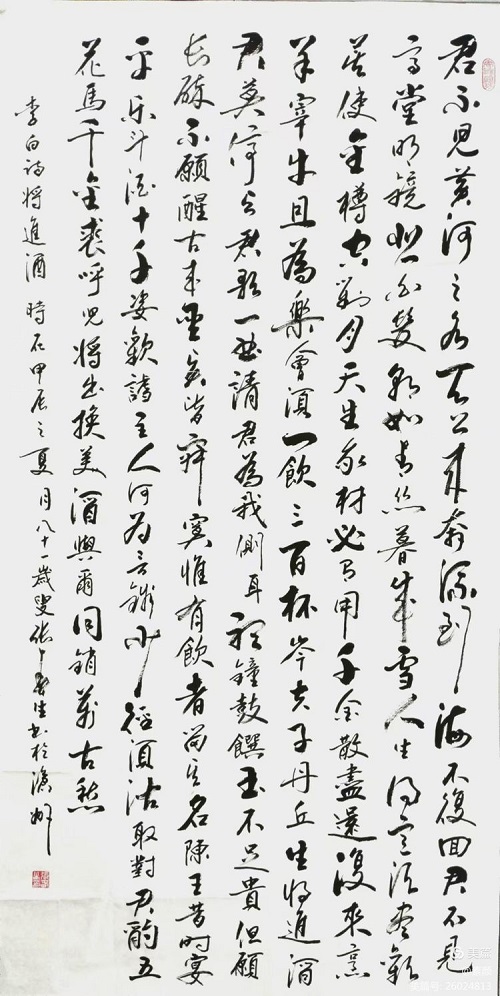 君不見黄河之水天上来奔流到海不復回君不見
高堂明鏡悲白髮朝如青丝暮成雪人生得意须尽歡
莫使金樽空對月天生我材必有用千金散盡還復來烹
羊宰牛且為樂會須一飲三百杯岑夫子丹丘生將進酒
君莫停与君歌一曲請君為我側耳聽鐘鼓饌玉不足貴但願
长醉不願醒古来聖賢皆寂寞惟有飲者留其名陳王昔时宴
平乐斗酒十千恣歡謔主人何为言錢少徑須沽取對君酌五
花馬千金裘呼兒將出换美酒與爾同銷萬古愁
李白詩將進酒 時在甲辰之夏月八十一歲叟張生書於滄州
26024813